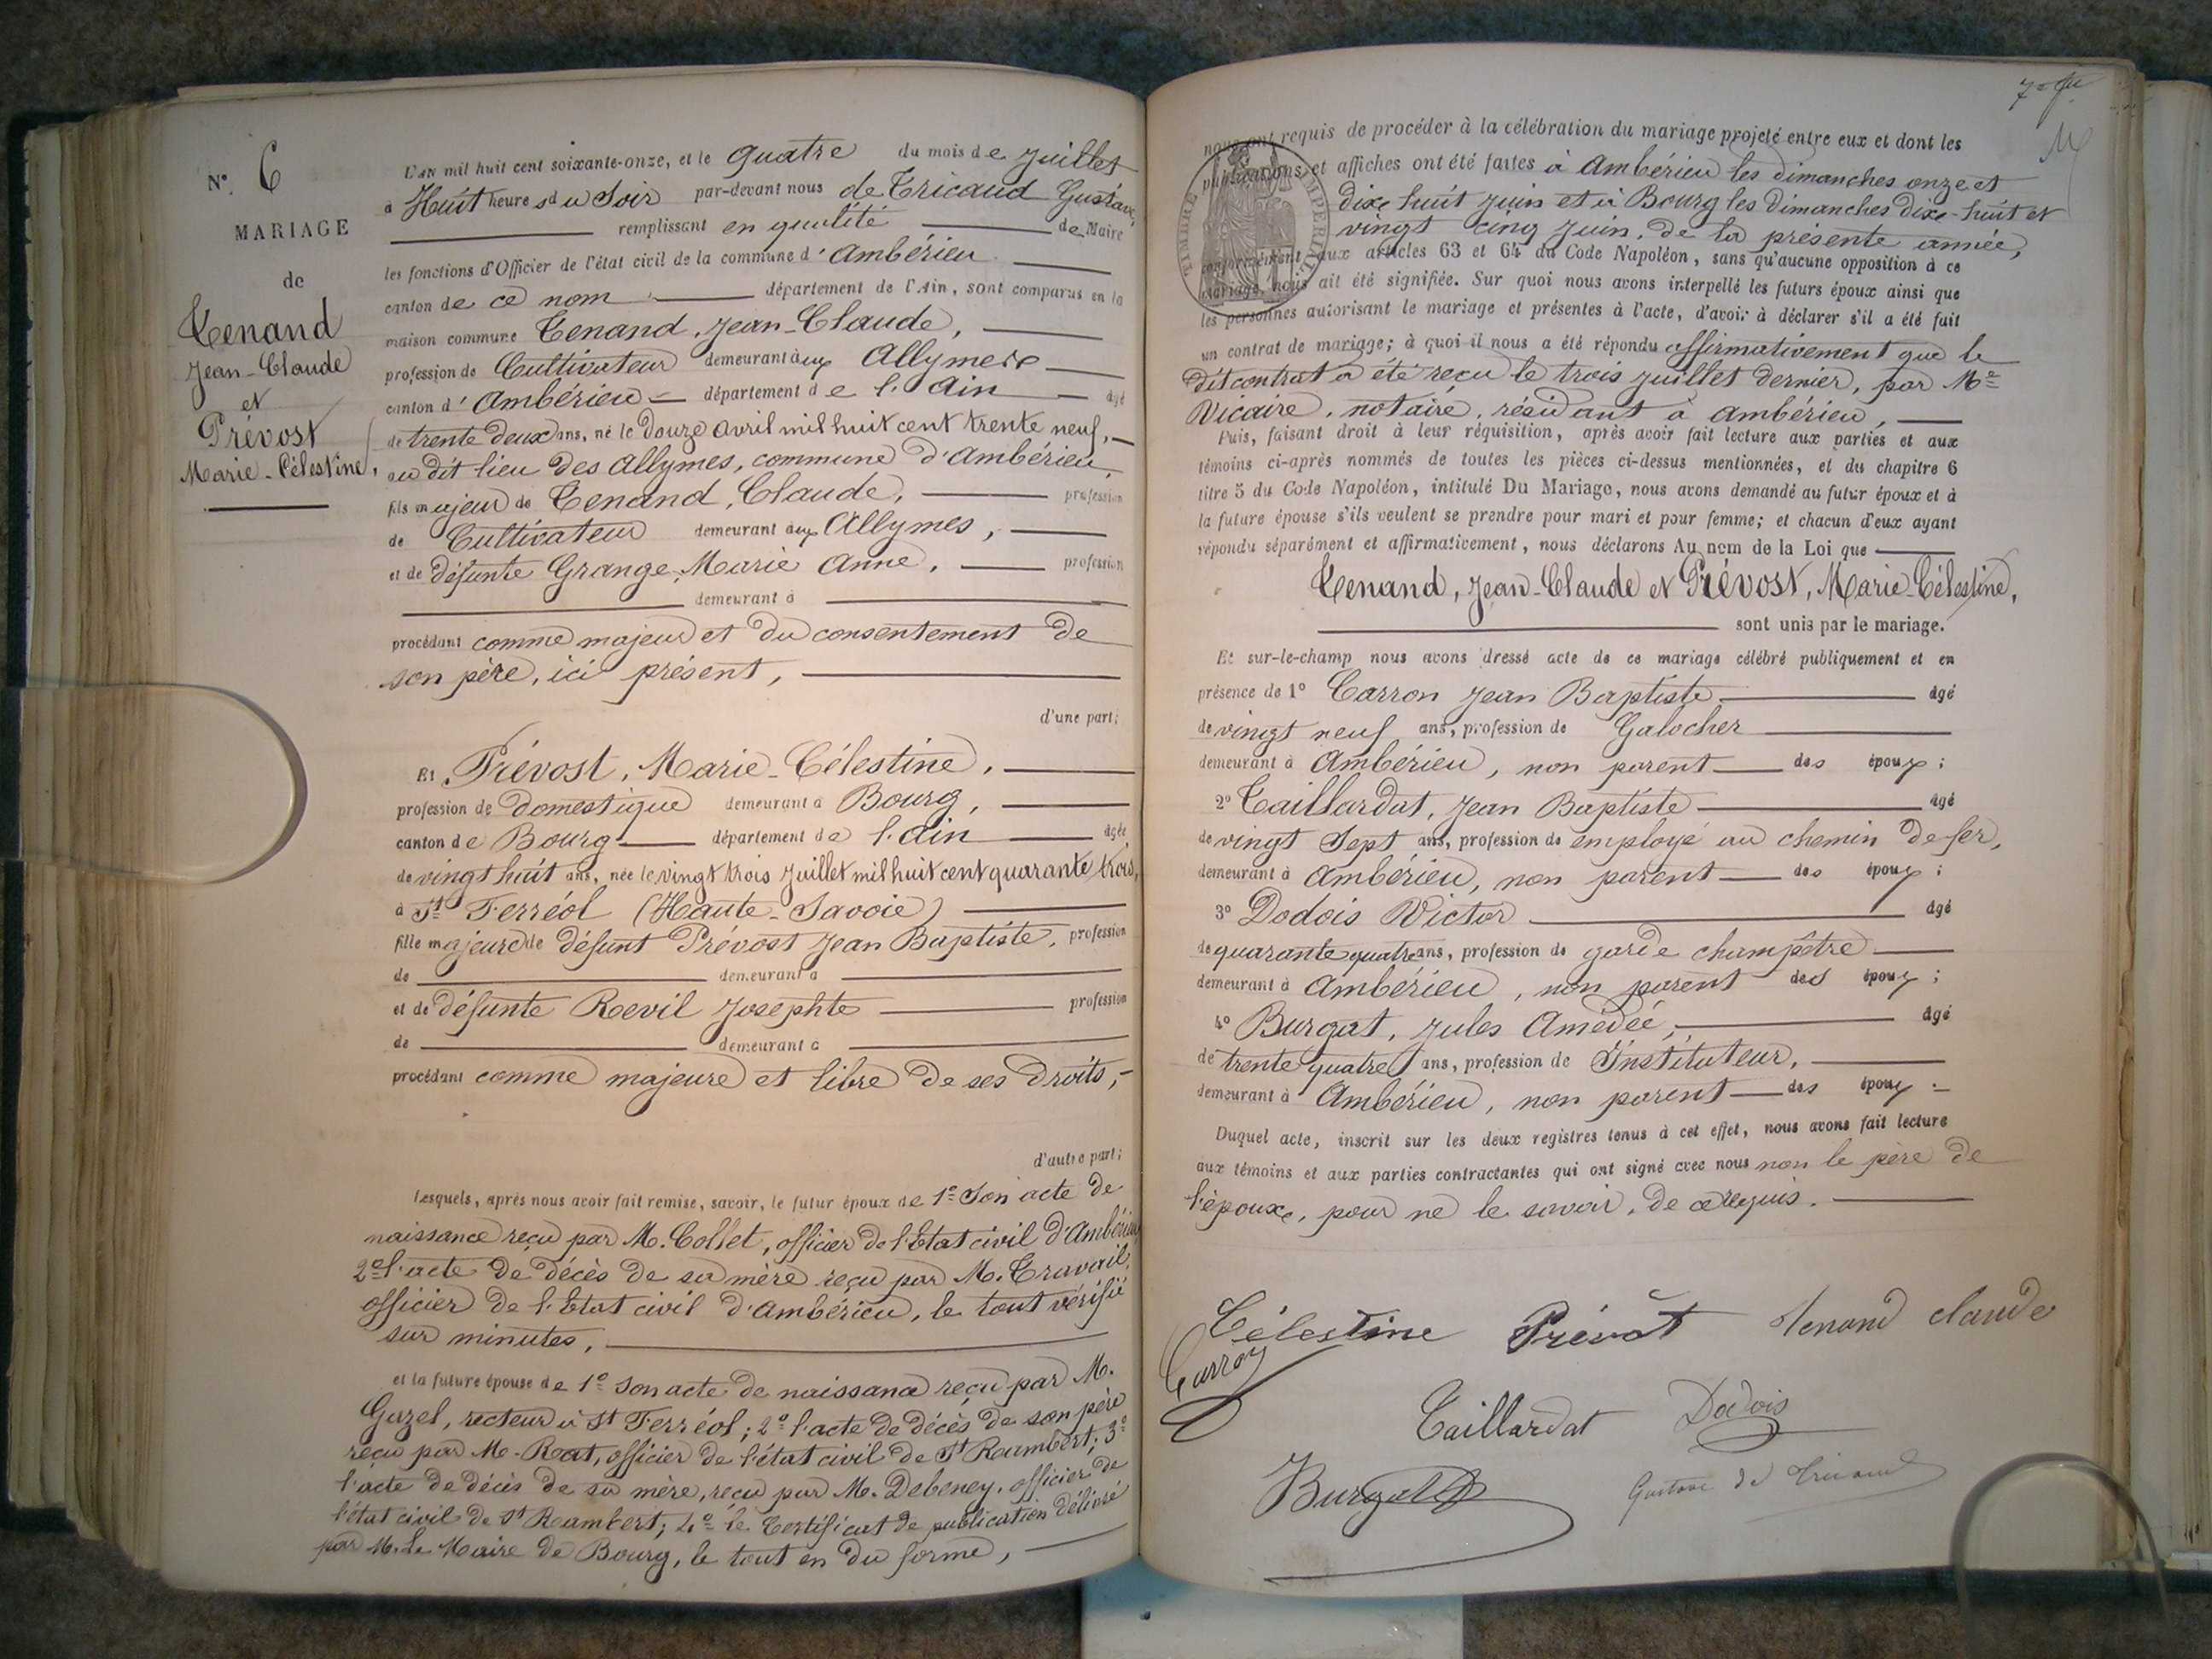 N°. 6
MARIAGE
de
Tenand
Jean-Claude
et
Prévost
Marie-Célestine,
L'an mil huit cent soixante-onze, et le quatre du mois de Juillet
à Huit heures du Soir par-devant nous de Tricaud Gustave,
remplissant en qualité de Maire
les fonctions d'Officier de l'état civil de la commune d'Ambérieu
canton de ce nom département de l'Ain, sont comparus en la
maison commune Tenand, Jean-Claude,
profession de Cultivateur demeurant aux Allymes
canton d'Ambérieu département de l'Ain âgé
de trente deux ans, né le Douze Avril mil huit cent trente neuf,
au dit lieu des Allymes, commune d'Ambérieu,
fils majeur de Tenand, Claude, profession
de Cultivateur demeurant aux Allymes,
et de défunte Grange, Marie Anne, profession
demeurant à
procédant comme majeur et du consentement de
son père, ici présent,
d'une part;
Et Prévost, Marie-Célestine,
profession de domestique demeurant à Bourg,
canton de Bourg département de l'Ain âgée
de vingt huit ans, née le vingt trois Juillet mil huit cent quarante trois,
à St Ferréol (Haute-Savoie)
fille majeure de défunt Prévost Jean Baptiste, profession
de demeurant à
et de défunte Revil Josephte profession
de demeurant à
procédant comme majeure et libre de ses droits,
d'autre part;
Lesquels, après nous avoir fait remise, savoir, le futur époux de 1° Son acte de
naissance reçu par M. Collet, officier de l'Etat civil d'Ambérieu
2° l'acte de décès de sa mère reçu par M. Travail,
officier de l'Etat civil d'Ambérieu, le tout vérifié
sur minutes,
et la future épouse de 1° Son acte de naissance reçu par M.
Gazel, recteur à St Ferréol; 2° l'acte de décès de son père
reçu par M. Rat, officier de l'état civil de St Rambert; 3°
l'acte de décès de sa mère, reçu par M. Debeney, officier de
l'état civil de St Rambert; 4° le Certificat de publication délivré
par M. Le Maire de Bourg, le tout en du forme,
nous ont requis de procéder à la célébration du mariage projeté entre eux et dont les
publications et affiches ont été faites à Ambérieu les dimanches onze et
dix huit juin et à Bourg les Dimanches dix-huit et
vingt cinq juin, de la présente année,
conformément aux articles 63 et 64 du Code Napoléon, sans qu'aucune opposition à ce
mariage, nous ait été signifiée. Sur quoi nous avons interpellé les futurs époux ainsi que
les personnes autorisant le mariage et présentes à l'acte, d'avoir à déclarer s'il a été fait
un contrat de mariage; à quoi il nous a été répondu affirmativement que le
dit contrat a été reçu le trois juillet dernier, par Me
Vicaire, notaire, résidant à Ambérieu,
Puis, faisant droit à leur réquisition, après avoir fait lecture aux parties et aux
témoins ci-après nommés de toutes les pièces ci-dessus mentionnées, et du chapitre 6
titre 5 du Code Napoléon, intitulé Du Mariage, nous avons demandé au futur époux et à
la future épouse s'ils veulent se prendre pour mari et pour femme; et chacun d'eux ayant
répondu séparément et affirmativement, nous déclarons Au nom de la Loi que
Tenand, Jean-Claude et Prévost, Marie-Célestine,
sont unis par le mariage.
Et sur-le-champ nous avons dressé acte de ce mariage célébré publiquement et en
présence de 1° Carron Jean Baptiste âgé
de vingt neuf ans, profession de Galocher
demeurant à Ambérieu, non parent des époux;
2° Taillardat, Jean Baptiste âgé
de vingt Sept ans, profession de employé au chemin de fer,
demeurant à Ambérieu, non parent des époux;
3° Dodois Victor âgé
de quarante quatre ans, profession de garde champêtre
demeurant à Ambérieu, non parent des époux;
4° Burgat, Jules Amédée, âgé
de trente quatre ans, profession de Instituteur,
demeurant à Ambérieu, non parent des époux
Duquel acte, inscrit sur les deux registres tenus à cet effet, nous avons fait lecture
aux témoins et aux parties contractantes qui ont signé avec nous non le père de
l'époux, pour ne le savoir, de ce requis.
Célestine Prévôt Tenand claude
Carron
Taillardat Dodois
Burgat Gustave de Tricaud
TIMBRE IMPERIAL